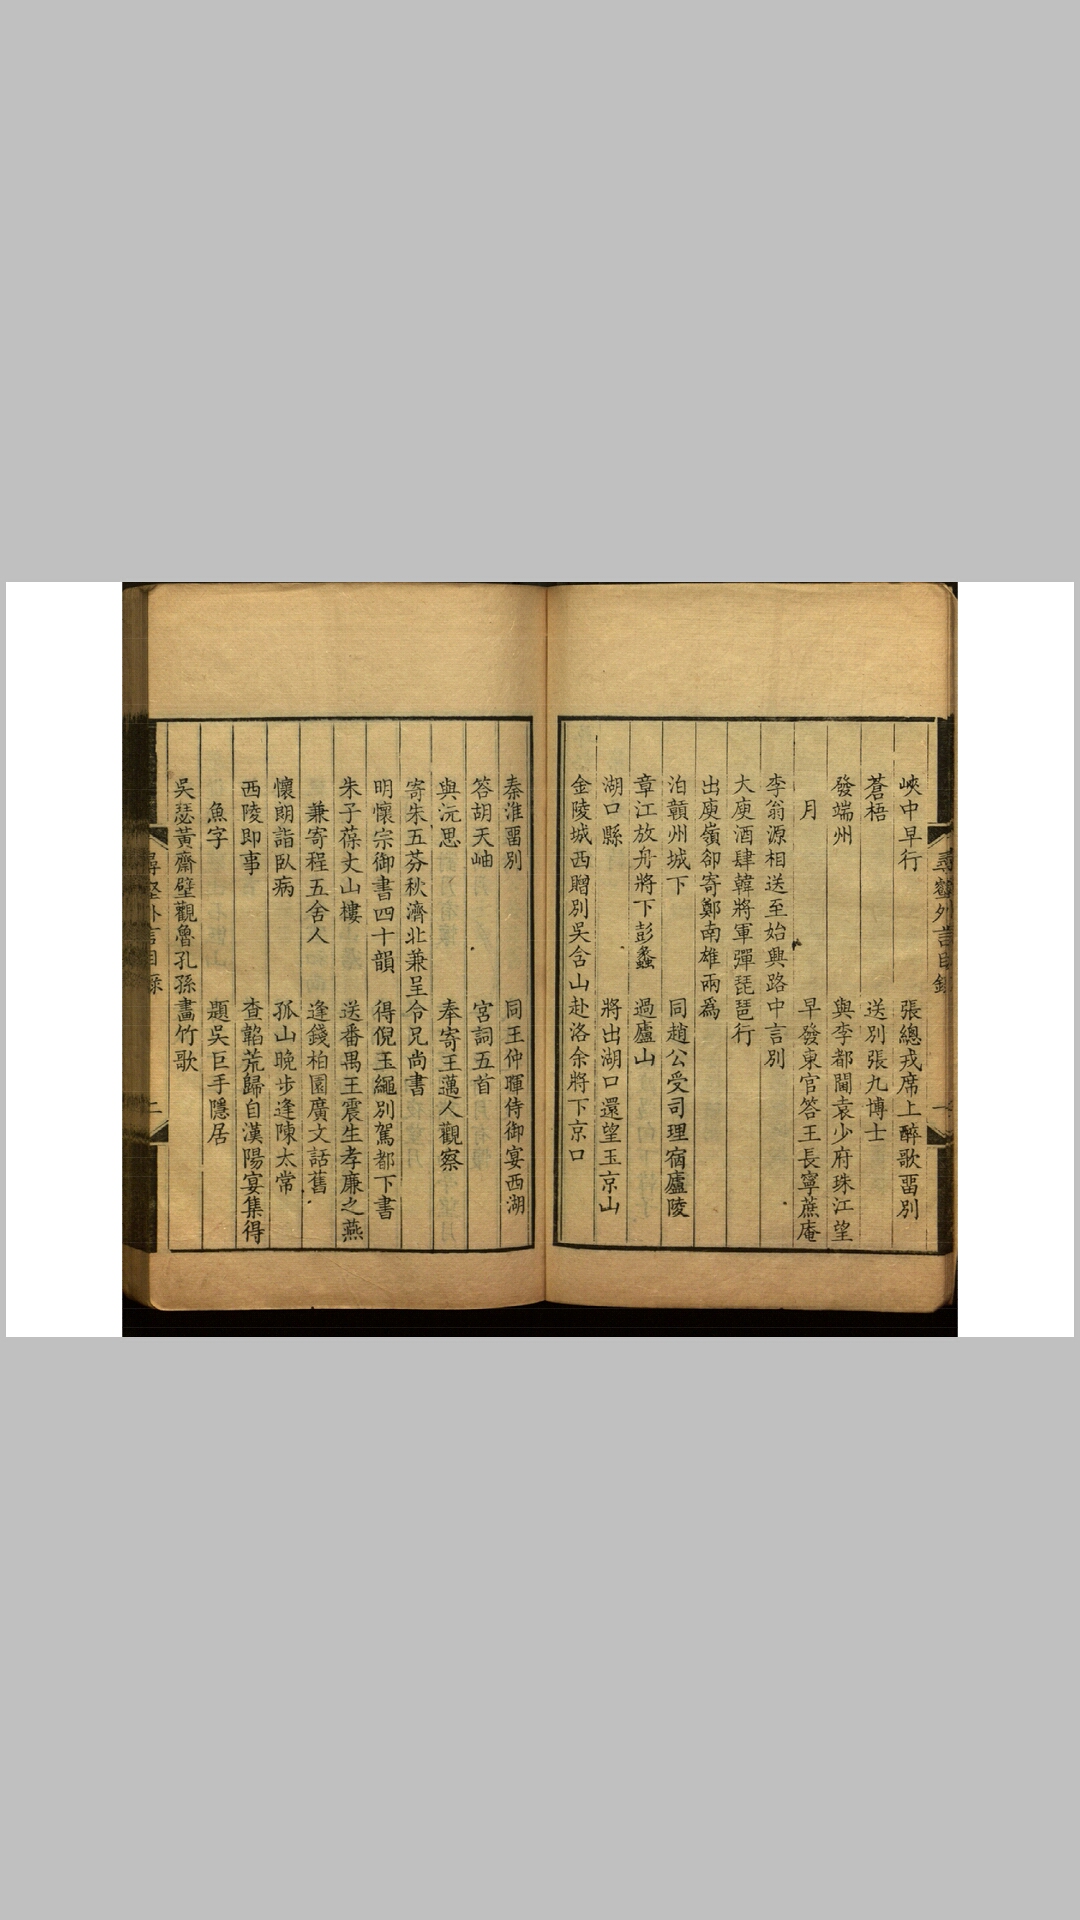 尋壑外言目錄
一
峽中早行　張總戎席上醉歌畱別
蒼梧　送別張九博士
發端州　與李都閫袁少府珠江望
月　早發東官答王長寧蔗庵
李翁源相送至始興路中言別
大庾酒肆韓將軍彈琵琶行
出庾嶺卻寄鄭南雄兩爲
泊贛州城下　同趙公受司理宿廬陵
章江放舟將下彭蠡　過廬山
湖口縣　將出湖口還望玉京山
金陵城西贈別吳含山赴洛余將下京口
秦淮畱別　同王仲暉侍御宴西湖
答胡天岫　宮詞五首
與沅思　奉寄王邁人觀察
寄朱五芬秋濟北兼呈令兄尚書
明懷宗御書四十韻　得倪玉繩別駕都下書
朱子葆丈山樓　送番禺王震生孝廉之燕
兼寄程五舍人　逢錢柏園廣文話舊
懷朗詣臥病　孤山晚步逢陳太常
西陵即事　查韜荒歸自漢陽宴集得
魚字　題吳巨手隱居
吳瑟黃齋壁觀魯孔孫畫竹歌
尋壑外言目錄
二